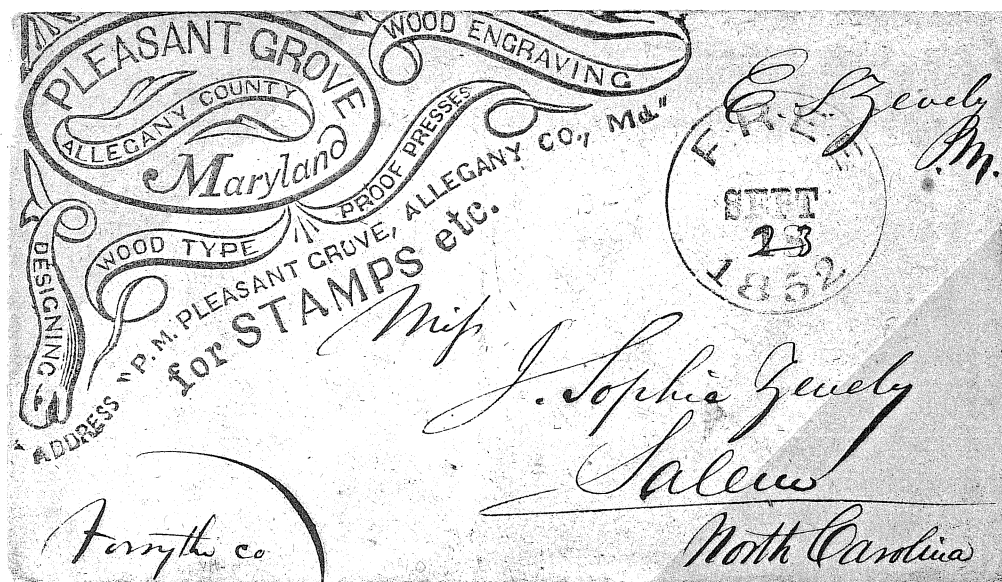 PLEASANT GROVE
ALLEGANY COUNTY
Maryland
WOOD ENGRAVING
PROOF PRESSES
WOOD TYPE
DESIGNING
ADDRESS "P.M. PLEASANT GROVE, ALLEGANY CO., Md."
for STAMPS etc.
E. S. Zevely
P.M.
FREE
SEPT
23
1852
Miss
J. Sophia Zevely
Salem
North Carolina
Forsythe co